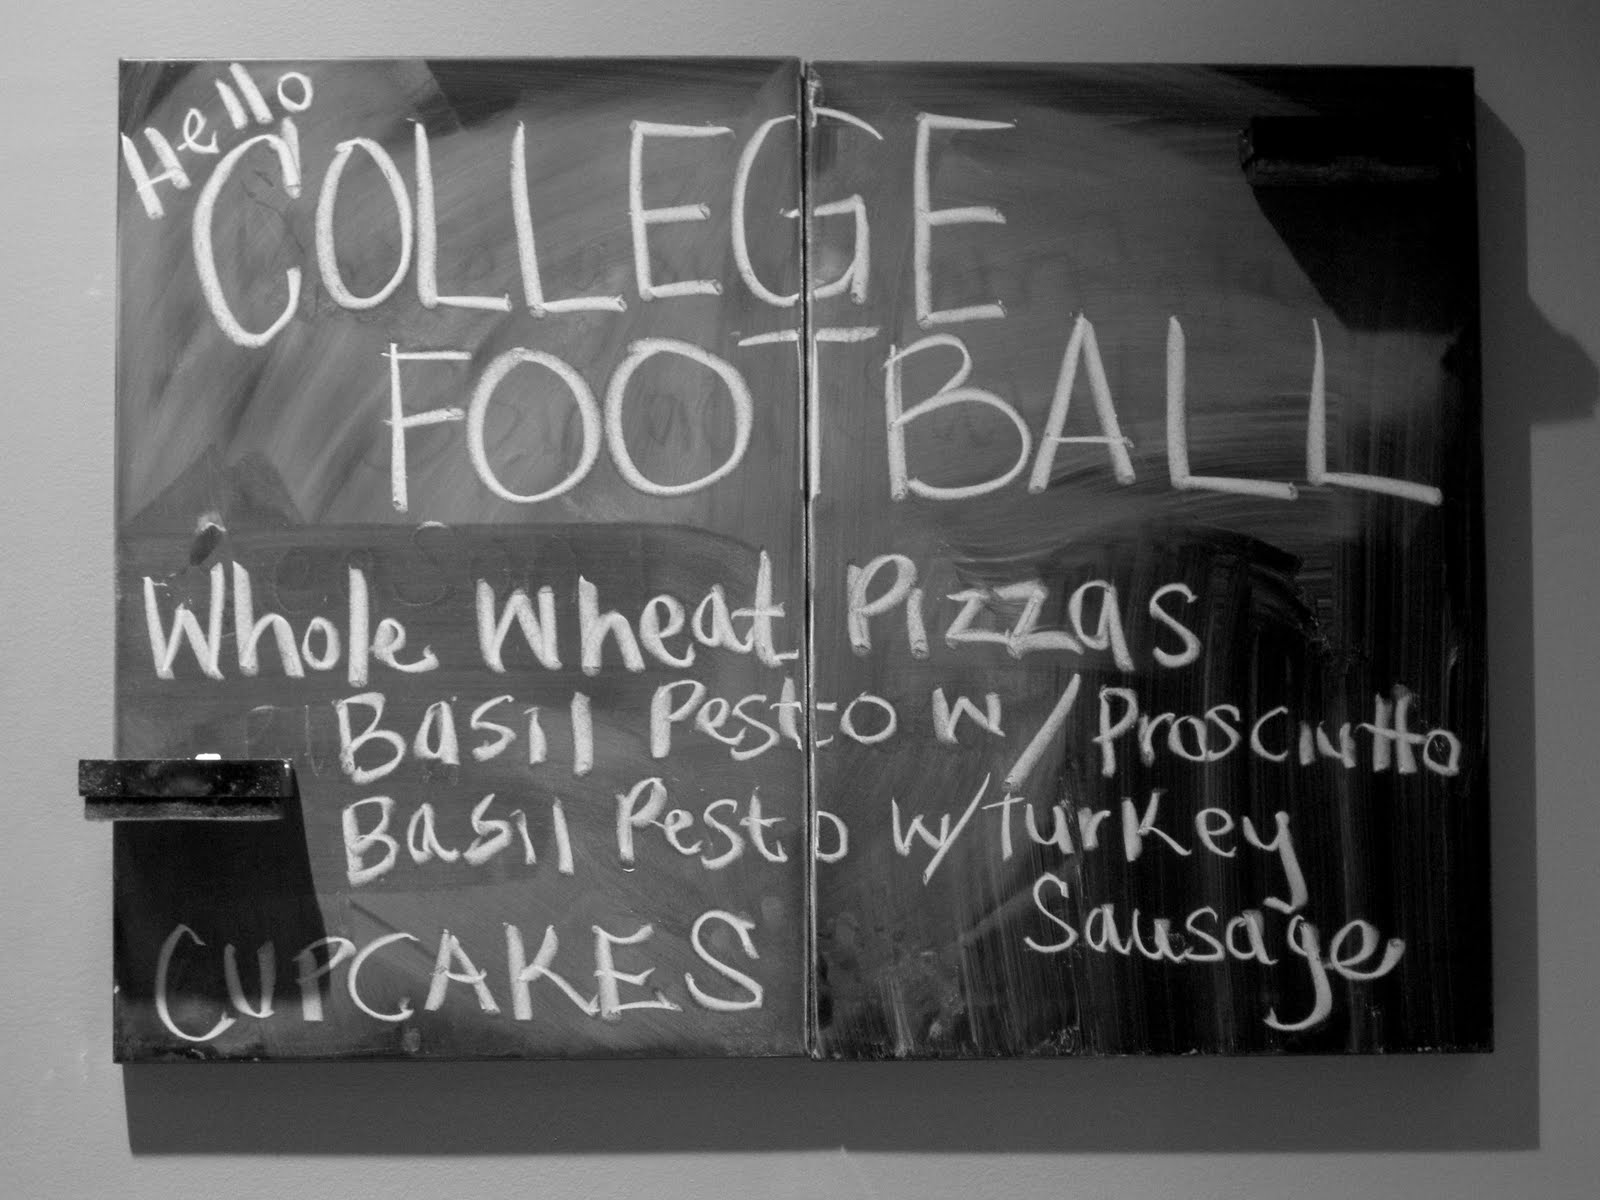 Hello
COLLEGE
FOOTBALL
Whole Wheat Pizzas
Basil Pesto w/ Prosciutto
Basil Pesto w/ Turkey
Sausage
CUPCAKES